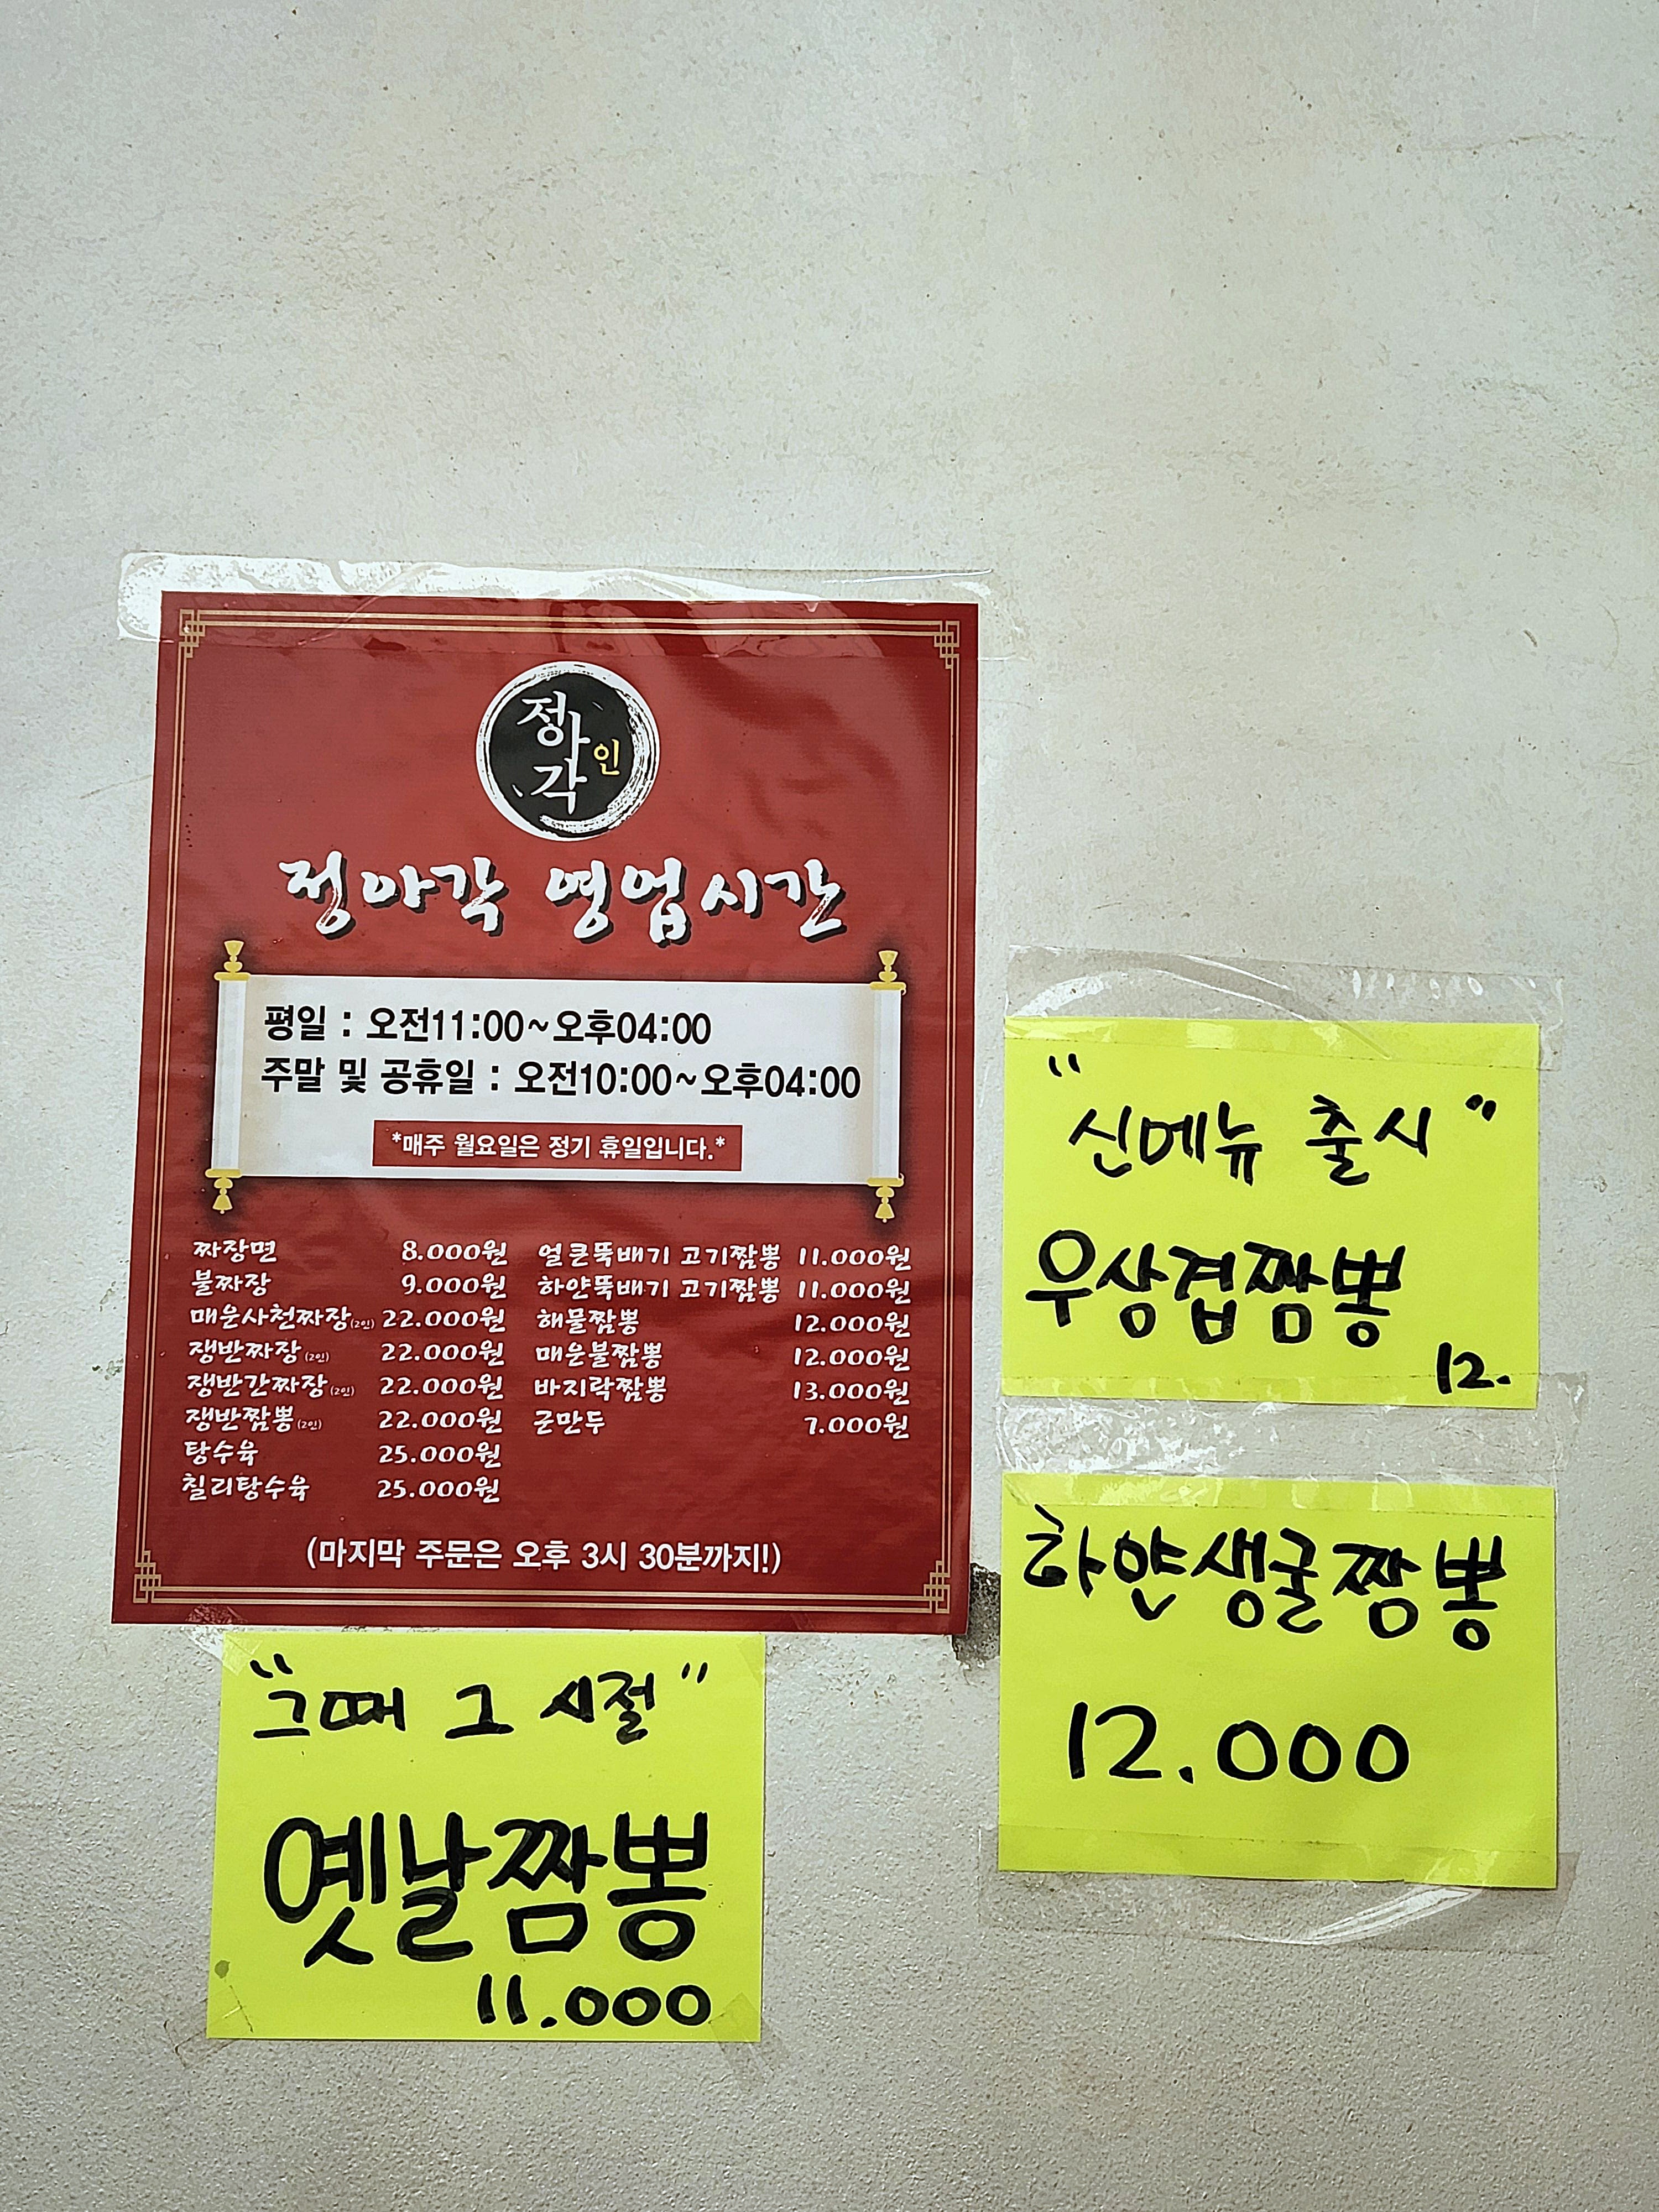 정아각
인
정아각 영업시간
평일 : 오전11:00~오후04:00
주말 및 공휴일 : 오전10:00~오후04:00
*매주 월요일은 정기 휴일입니다.*
짜장면 8.000원
불짜장 9.000원
매운사천짜장(2인) 22.000원
쟁반짜장(2인) 22.000원
쟁반간짜장(2인) 22.000원
쟁반짬뽕(2인) 22.000원
탕수육 25.000원
칠리탕수육 25.000원
얼큰뚝배기 고기짬뽕 11.000원
하얀뚝배기 고기짬뽕 11.000원
해물짬뽕 12.000원
매운불짬뽕 12.000원
바지락짬뽕 13.000원
군만두 7.000원
(마지막 주문은 오후 3시 30분까지!)
"신메뉴 출시"
우삼겹짬뽕
12.
하얀생굴짬뽕
12.000
"그때 그 시절"
옛날짬뽕
11.000